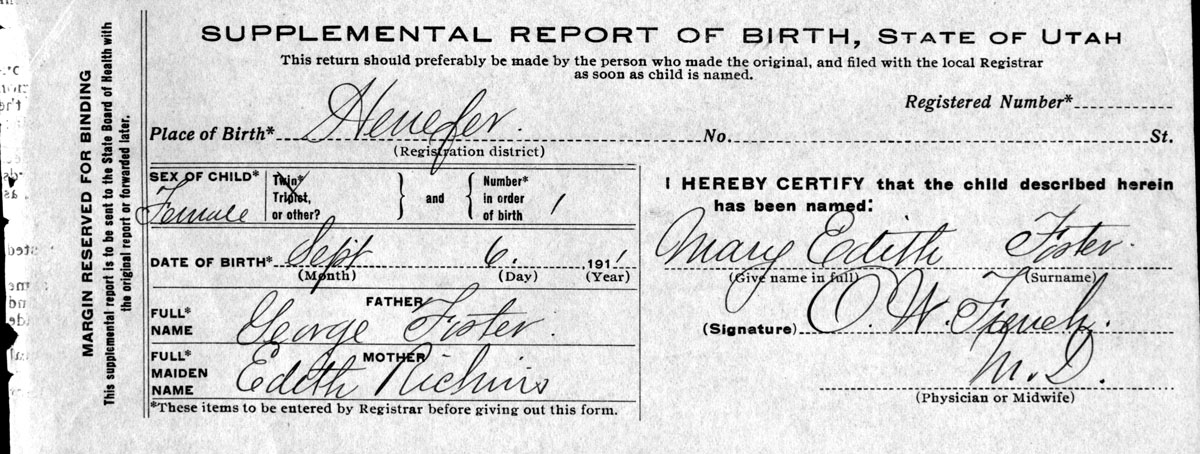 SUPPLEMENTAL REPORT OF BIRTH, STATE OF UTAH
This return should preferably be made by the person who made the original, and filed with the local Registrar
as soon as child is named.
Registered Number*
Place of Birth* Henefer. No. St.
(Registration district)
SEX OF CHILD* Female
Twin*
Triplet,
or other?
and
Number*
in order
of birth 1
DATE OF BIRTH* Sept 6. 1911
(Month) (Day) (Year)
FATHER
FULL*
NAME George Foster.
MOTHER
FULL*
MAIDEN
NAME Edith Richins
*These items to be entered by Registrar before giving out this form.
I HEREBY CERTIFY that the child described herein
has been named:
Mary Edith Foster.
(Give name in full) (Surname)
(Signature) O. W. French.
M.D.
(Physician or Midwife)
MARGIN RESERVED FOR BINDING
This supplemental report is to be sent to the State Board of Health with
the original report or forwarded later.